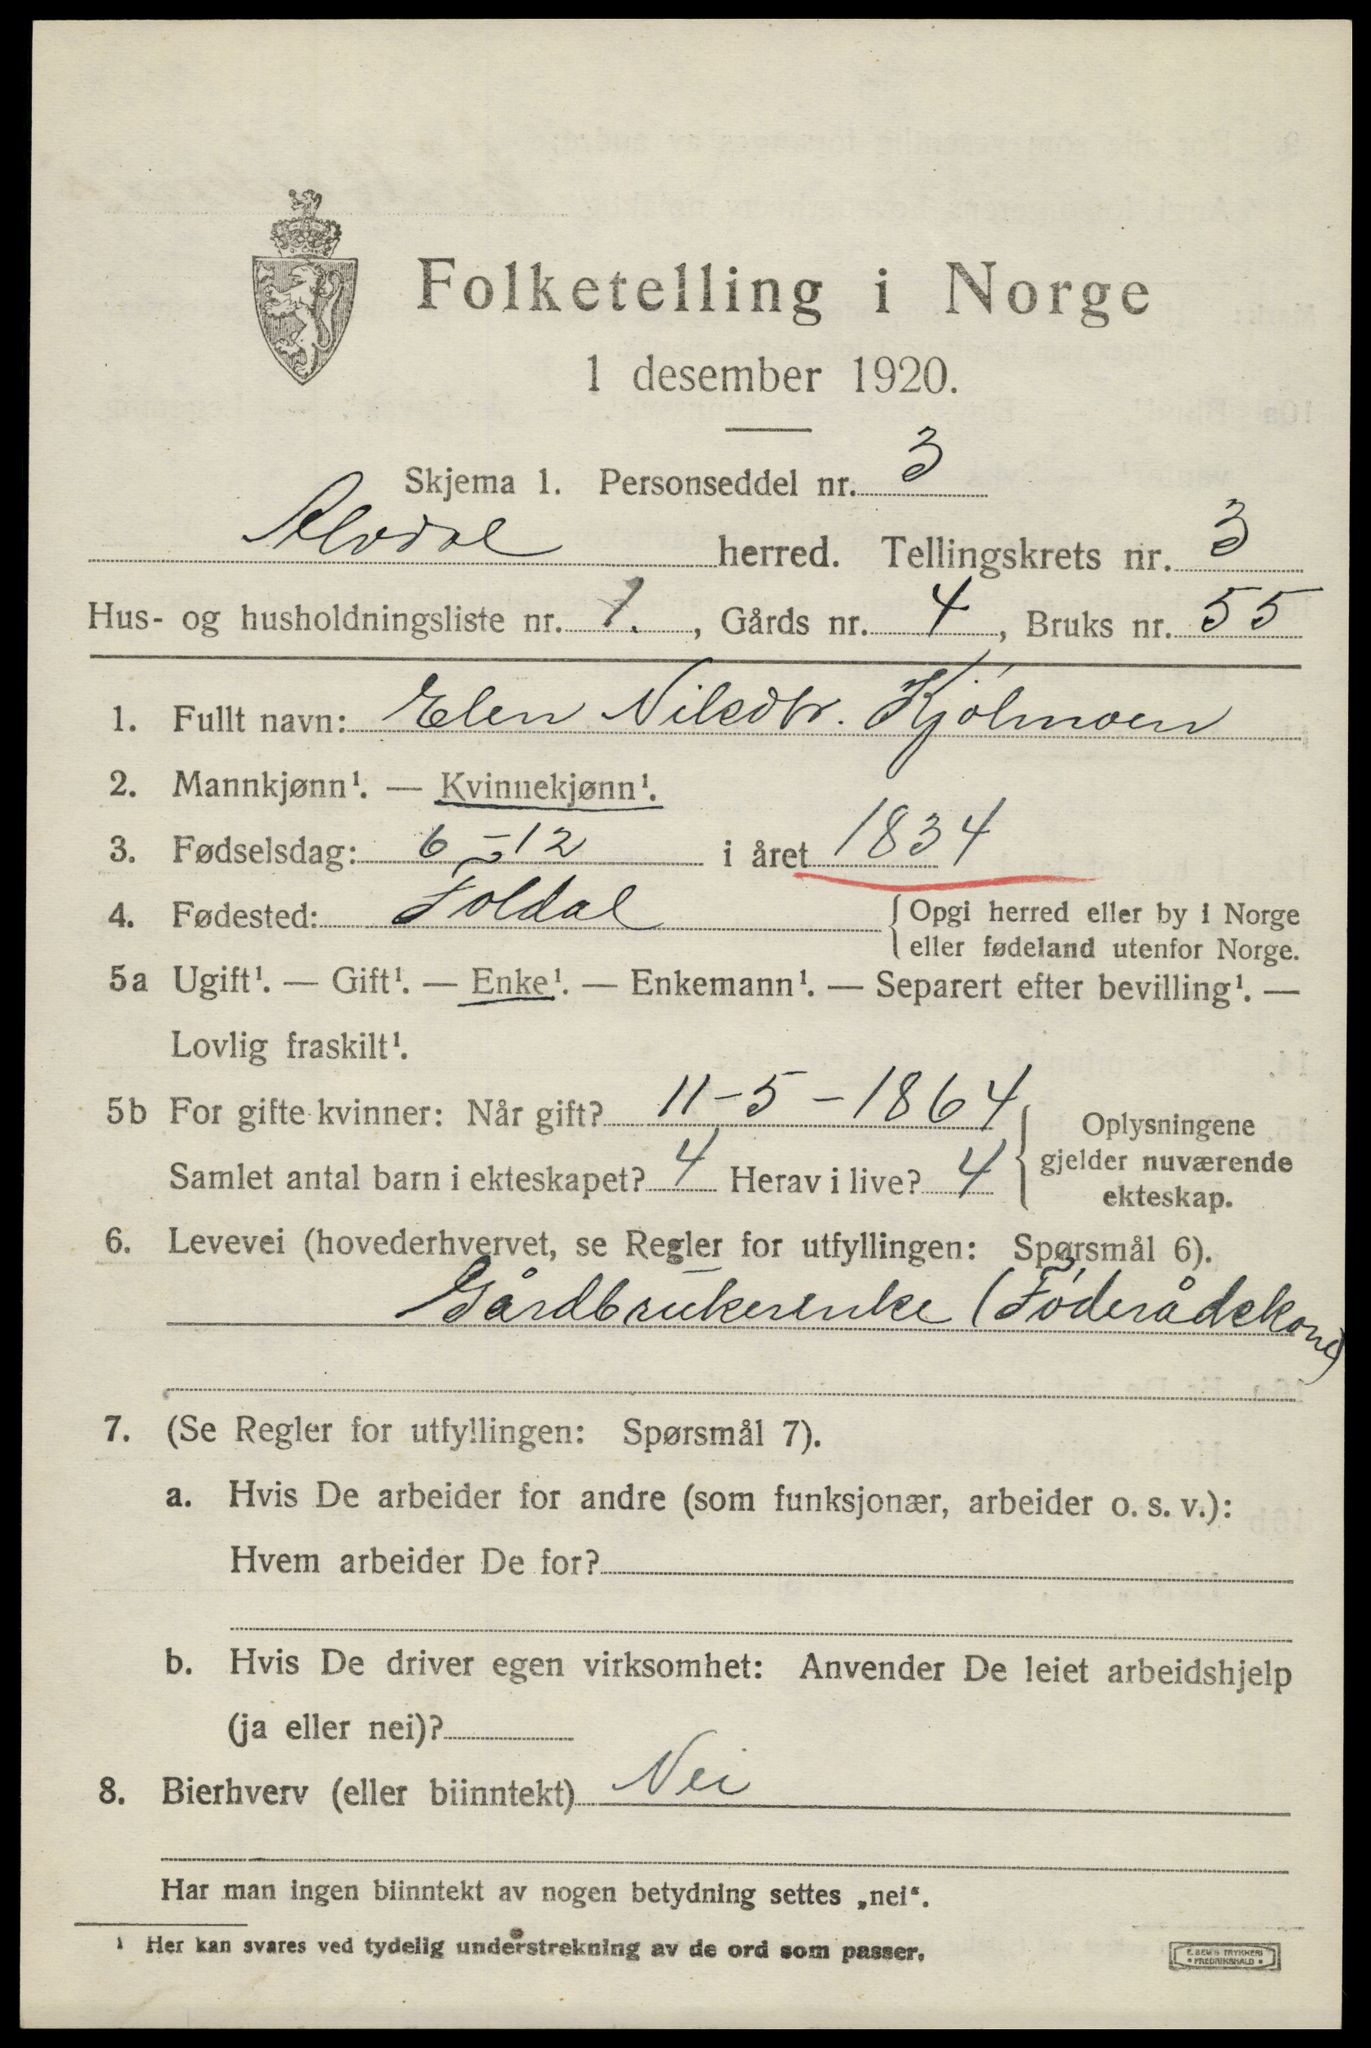 Folketelling i Norge
1 desember 1920.
Skjema 1. Personseddel nr. 3
Alvdal herred. Tellingskrets nr. 3
Hus- og husholdningsliste nr. 1., Gårds nr. 4, Bruks nr. 55
1. Fullt navn: Elen Nilsdtr. Kjölmoen
2. Mannkjønn¹. — Kvinnekjønn¹.
3. Fødselsdag: 6-12 i året 1834
4. Fødested: Foldal {Opgi herred eller by i Norge
eller fødeland utenfor Norge.
5a Ugift¹. — Gift¹. — Enke¹. — Enkemann¹. — Separert efter bevilling¹. —
Lovlig fraskilt¹.
5b For gifte kvinner: Når gift? 11-5-1864
Samlet antal barn i ekteskapet? 4 Herav i live? 4
{Oplysningene
gjelder nuværende
ekteskap.
6. Levevei (hovederhvervet, se Regler for utfyllingen: Spørsmål 6).
Gårdbrukerenke (Föderådskone)
7. (Se Regler for utfyllingen: Spørsmål 7).
a. Hvis De arbeider for andre (som funksjonær, arbeider o. s. v.):
Hvem arbeider De for?
b. Hvis De driver egen virksomhet: Anvender De leiet arbeidshjelp
(ja eller nei)?
8. Bierhverv (eller biinntekt) Nei
Har man ingen biinntekt av nogen betydning settes „nei“.
¹ Her kan svares ved tydelig understrekning av de ord som passer.
E. SEM'S TRYKKERI
• FREDRIKSHALD •